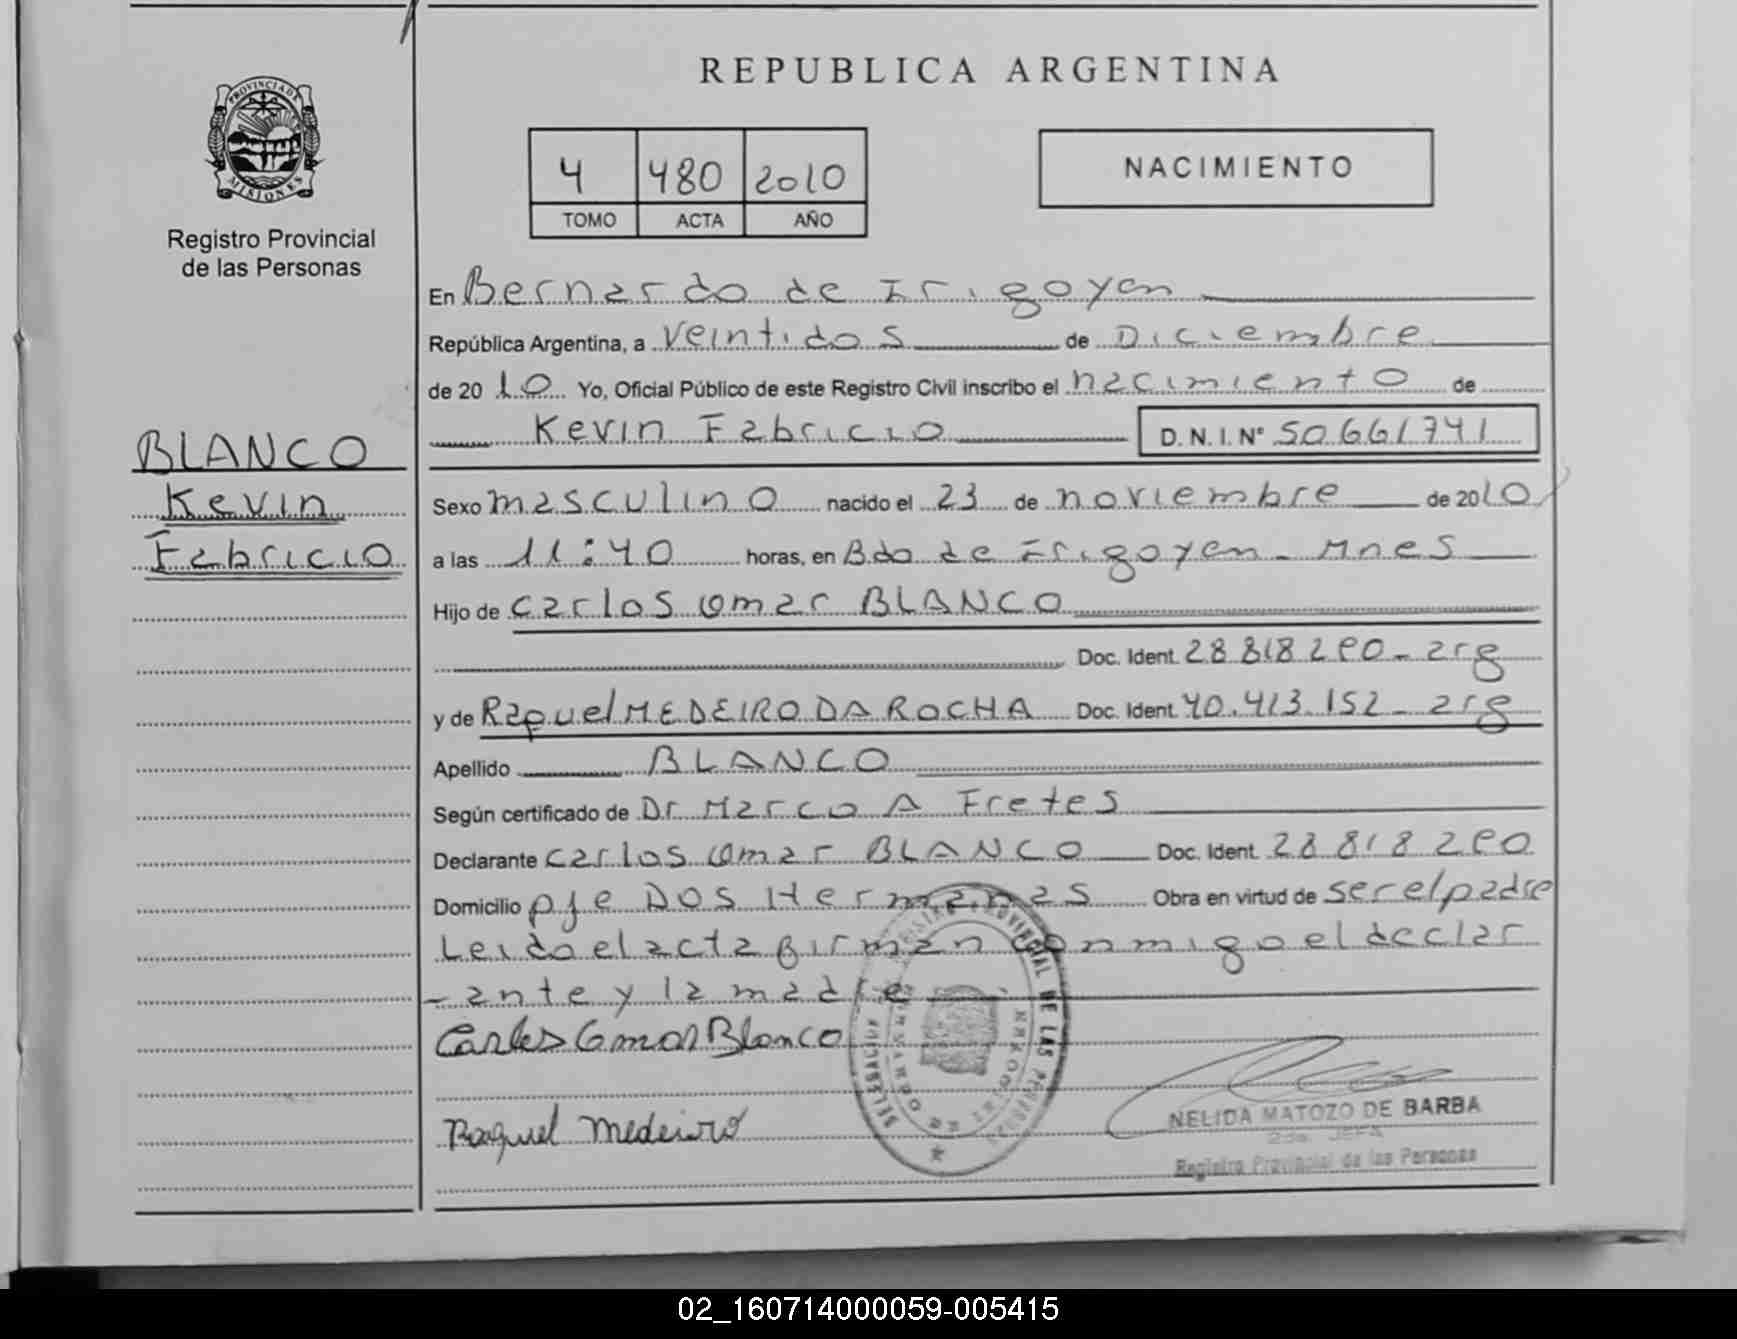 REPUBLICA ARGENTINA
PROVINCIA DE MISIONES
Registro Provincial
de las Personas
4 480 2010
TOMO ACTA AÑO
NACIMIENTO
En Bernardo de Irigoyen
República Argentina, a Veintidos de Diciembre
de 2010 Yo, Oficial Público de este Registro Civil inscribo el nacimiento de
Kevin Fabricio D.N.I.Nº 50661741
BLANCO
Kevin
Fabricio
Sexo masculino nacido el 23 de noviembre de 2010
a las 11:40 horas, en Bdo de Irigoyen - Mnes
Hijo de Carlos Omar BLANCO
Doc. Ident. 28 818 2 0 - arg
y de Raquel MEDEIRO DA ROCHA Doc. Ident. 40.413.152 - arg
Apellido BLANCO
Según certificado de Dr Marco A Fretes
Declarante Carlos Omar BLANCO Doc. Ident. 28 818 2 0
Domicilio pje Dos Hermanas Obra en virtud de ser el padre
Leido el acta firman conmigo el declar
-ante y la madre
Carlos Omar Blanco
Raquel Medeiro
REGISTRO PROVINCIAL DE LAS PERSONAS
NELIDA MATOZO DE BARBA
2da. JEFA
Registro Provincial de las Personas
02_160714000059-005415